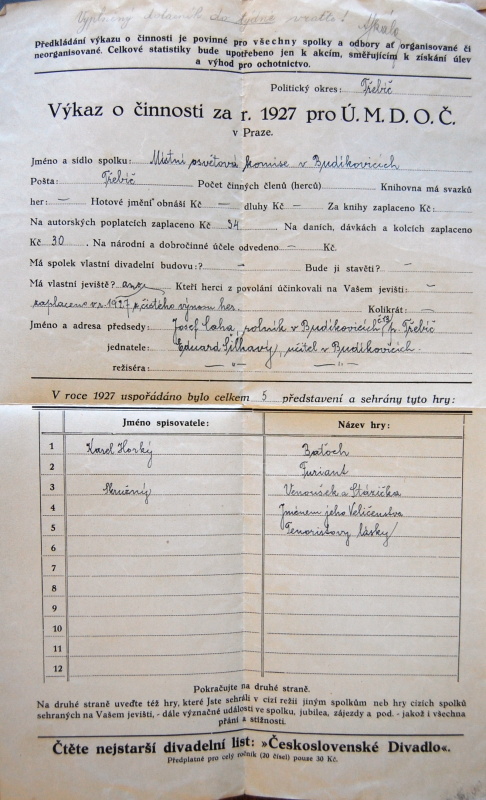 Vyplněný dotazník do týdne vraťte!
Předkládání výkazu o činnosti je povinné pro všechny spolky a odbory ať organisované či
neorganisované. Celkové statistiky bude upotřebeno jen k akcím, směřujícím k získání úlev
a výhod pro ochotnictvo.
Politický okres: Třebíč
Výkaz o činnosti za r. 1927 pro Ú. M. D. O. Č.
v Praze.
Jméno a sídlo spolku: Místní osvětová komise v Budíkovicích
Pošta: Třebíč Počet činných členů (herců) Knihovna má svazků
her: — Hotové jmění obnáší Kč — dluhy Kč — Za knihy zaplaceno Kč: —
Na autorských poplatcích zaplaceno Kč 54 Na daních, dávkách a kolcích zaplaceno
Kč 30. Na národní a dobročinné účele odvedeno — Kč.
Má spolek vlastní divadelní budovu? — Bude ji stavěti? —
Má vlastní jeviště? ano Kteří herci z povolání účinkovali na Vašem jevišti: —
zaplaceno v r. 1927 z čistého výnosu her. Kolikrát: —
Jméno a adresa předsedy: Josef Caha, rolník v Budíkovicích č 13, p. Třebíč
jednatele: Eduard Šilhavý, učitel v Budíkovicích.
režiséra: — " — — " —
V roce 1927 uspořádáno bylo celkem 5 představení a sehrány tyto hry:
Jméno spisovatele: Název hry:
1 Karel Horký Baťoch
2 Furiant
3 Skružný Venoušek a Stázička
4 Jménem jeho Veličenstva
5 Tenoristovy lásky
6
7
8
9
10
11
12
Pokračujte na druhé straně.
Na druhé straně uveďte též hry, které Jste sehráli v cizí režii jiným spolkům neb hry cizích spolků
sehraných na Vašem jevišti, - dále význačné události ve spolku, jubilea, zájezdy a pod. - jakož i všechna
přání a stížnosti.
Čtěte nejstarší divadelní list: »Československé Divadlo«.
Předplatné pro celý ročník (20 čísel) pouze 30 Kč.